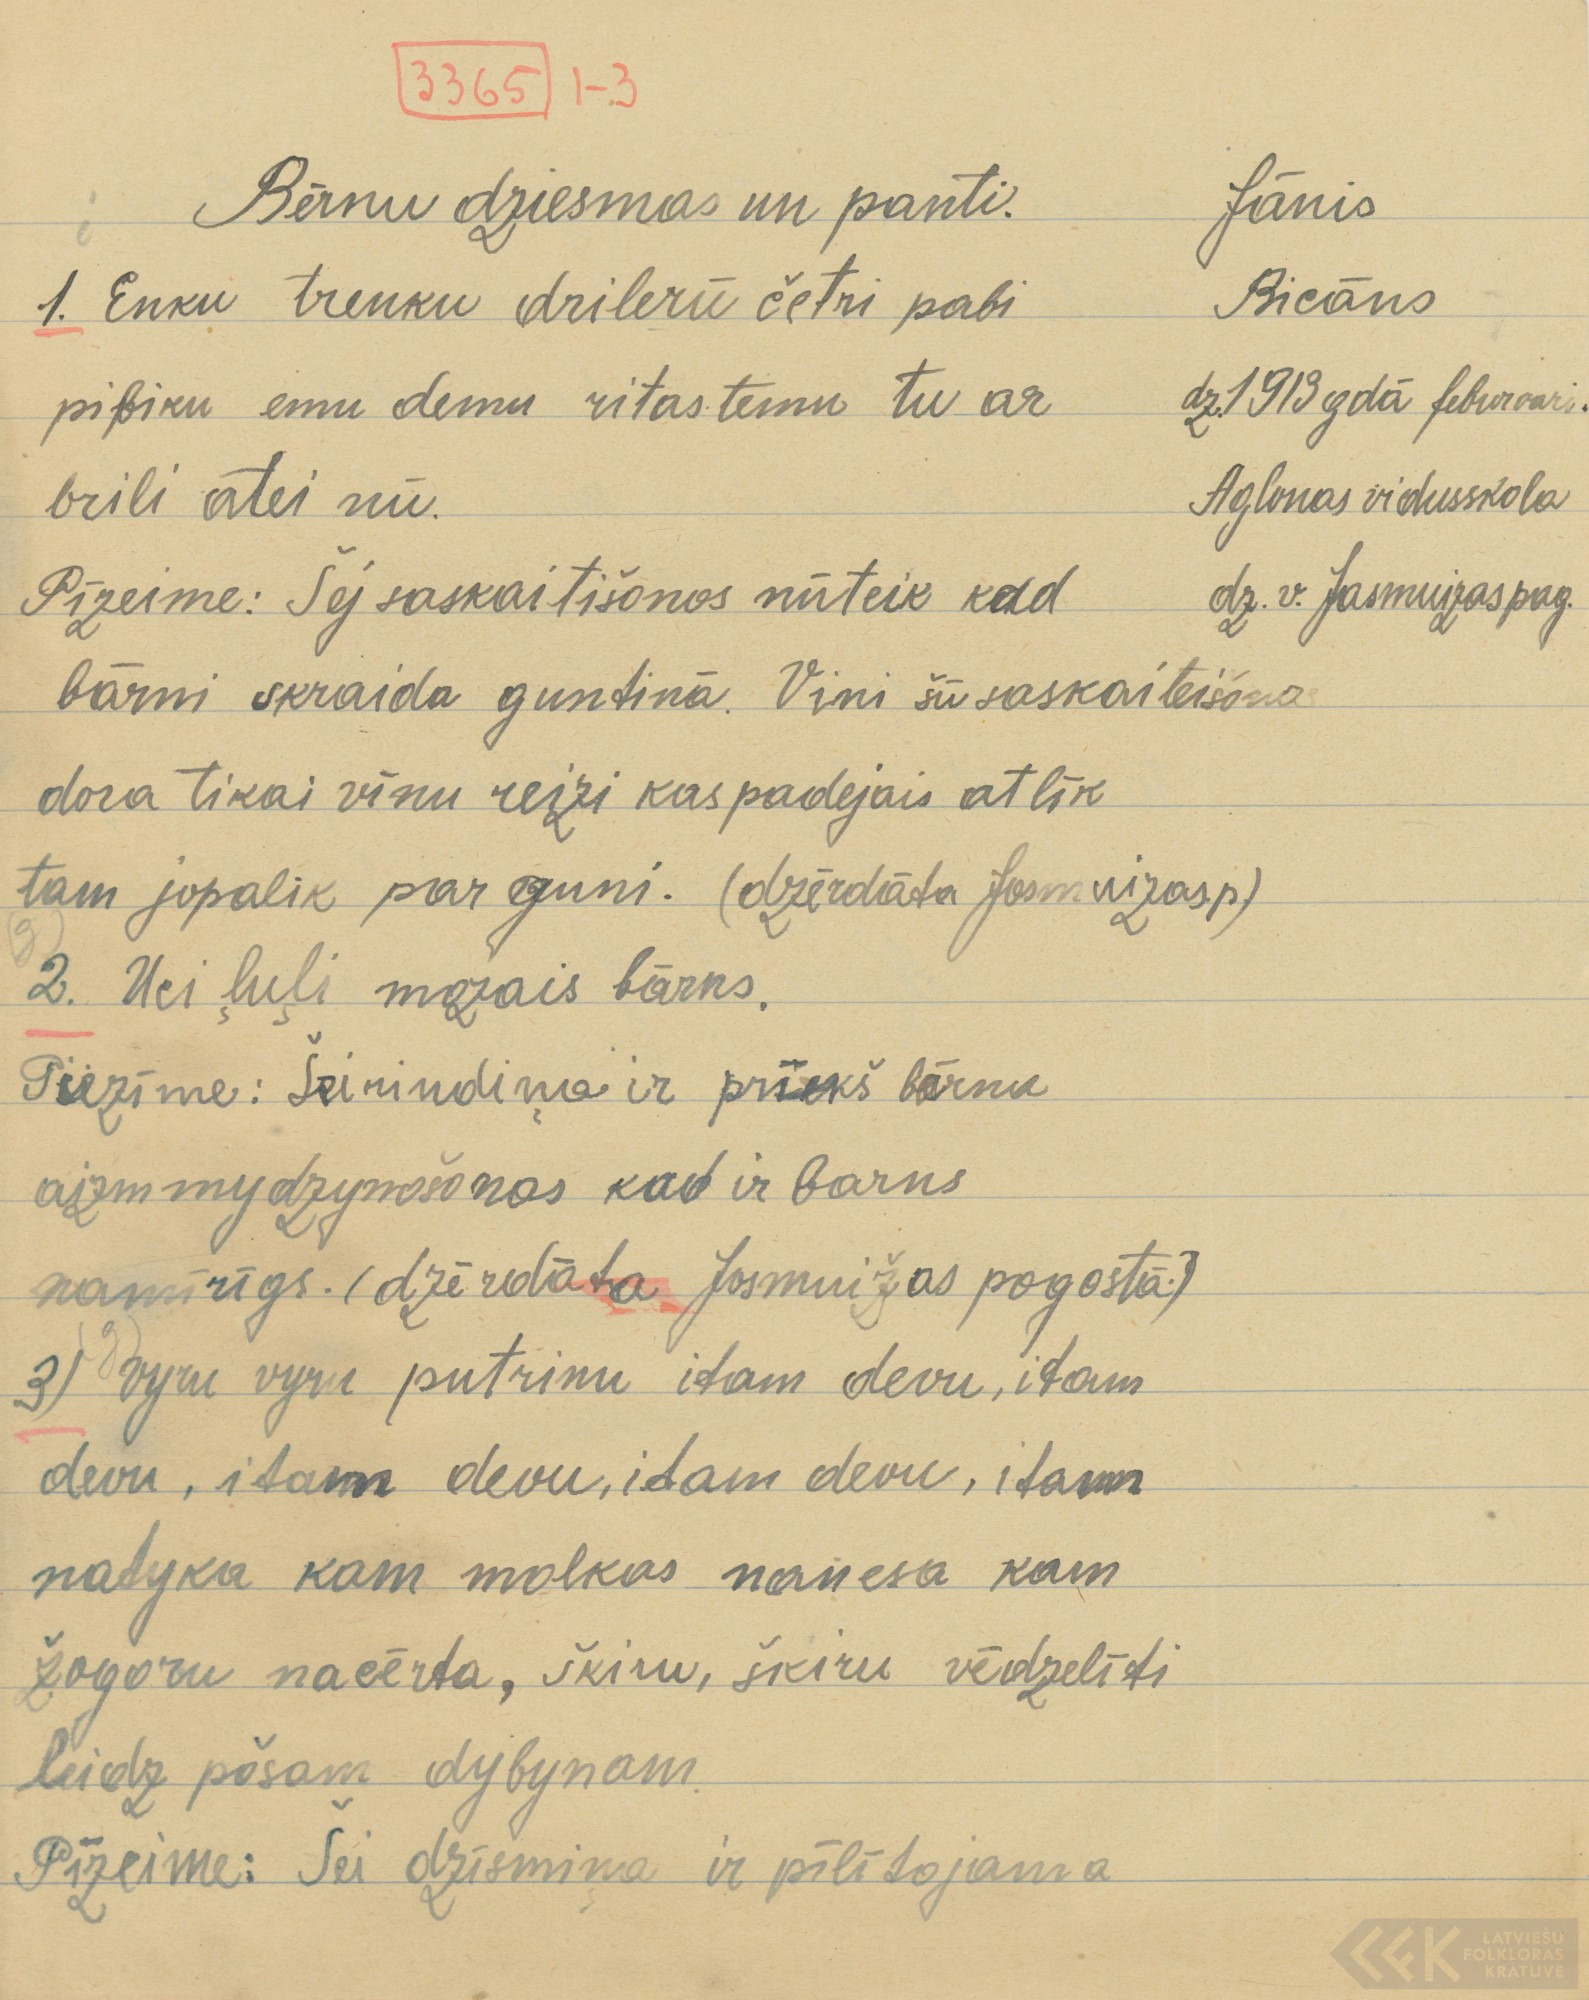 3365 1-3
Bērnu dziesmas un panti.
Jānis
Bicāns
dz. 1913 gdā feburoari.
Aglonas vidusskola
dz. v. Jasmuizas pag.
1. Enku trenku drilerū četri pabi
pipiku emu demu ritas temu tu ar
brili ātei nū.
Pīzeime: Šej saskaitišonos nūteik kad
bārni skraida guntinā. Vini šū saskaiteišona
dora tikai vīnu reizi kas padejais atlīk
tam jopalik par guni. (dzērdāta Josmuizas p)
2. Uci ļuļi mozais bārns.
Piezīme: Šei rindiņa ir prīekš bārnu
aizmmydzynošonas kad ir barns
namīrīgs. (dzērdāta Josmuižas pogostā.)
3) Vyru vyru putrinu itam devu, itam
devu, itam devu, itam devu, itam
natyka kam molkas nanesa kam
žogoru nacērta, škiru, škiru vēdzelīti
leidz pošam dybynam
Pīzeime: Šei dzīsmiņa ir pīlītojama
LATVIEŠU
FOLKLORAS
KRĀTUVE